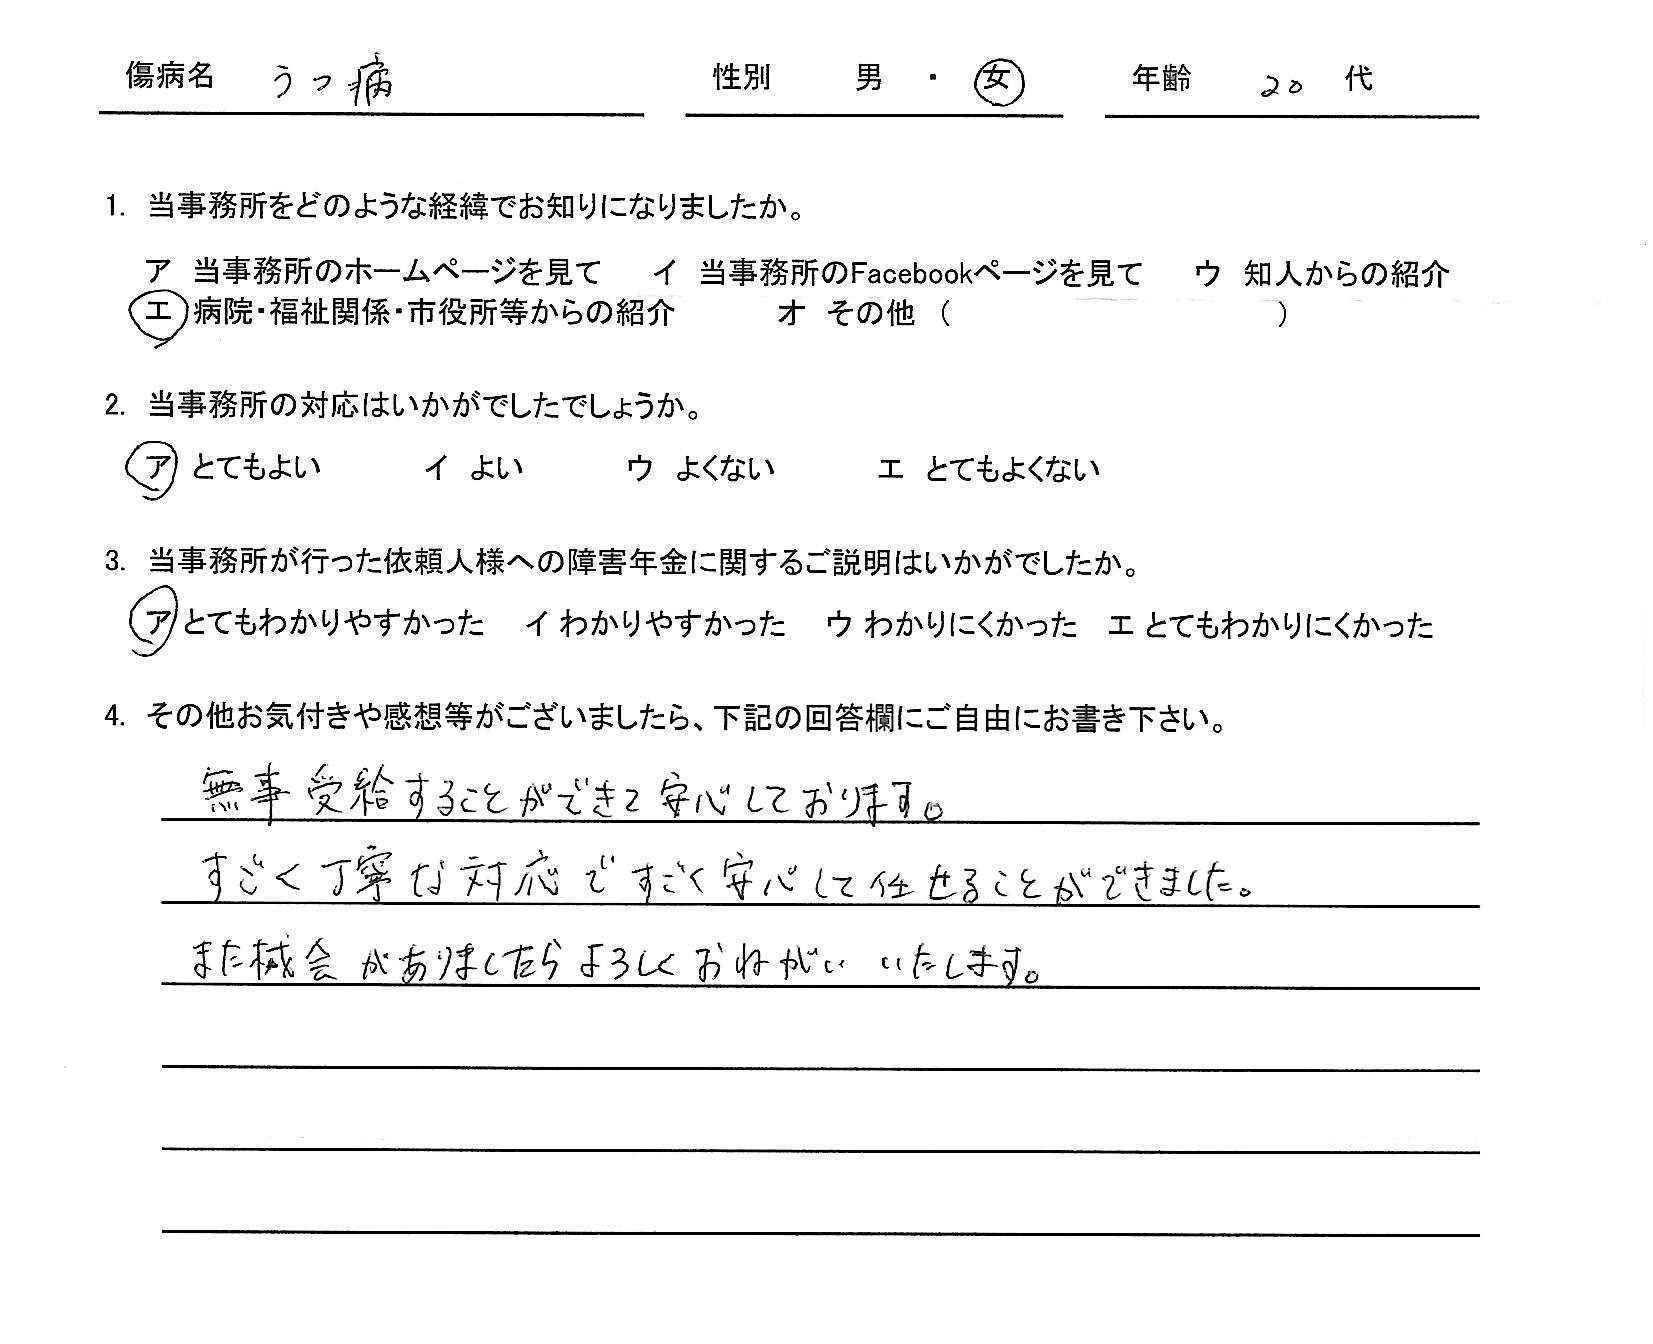 傷病名 うつ病 性別 男 ・ 女 年齢 20 代
1. 当事務所をどのような経緯でお知りになりましたか。
ア 当事務所のホームページを見て イ 当事務所のFacebookページを見て ウ 知人からの紹介
エ 病院・福祉関係・市役所等からの紹介 オ その他 ( )
2. 当事務所の対応はいかがでしたでしょうか。
ア とてもよい イ よい ウ よくない エ とてもよくない
3. 当事務所が行った依頼人様への障害年金に関するご説明はいかがでしたか。
ア とてもわかりやすかった イ わかりやすかった ウ わかりにくかった エ とてもわかりにくかった
4. その他お気付きや感想等がございましたら、下記の回答欄にご自由にお書き下さい。
無事受給することができて安心しております。
すごく丁寧な対応ですごく安心して任せることができました。
また機会がありましたらよろしくおねがいいたします。